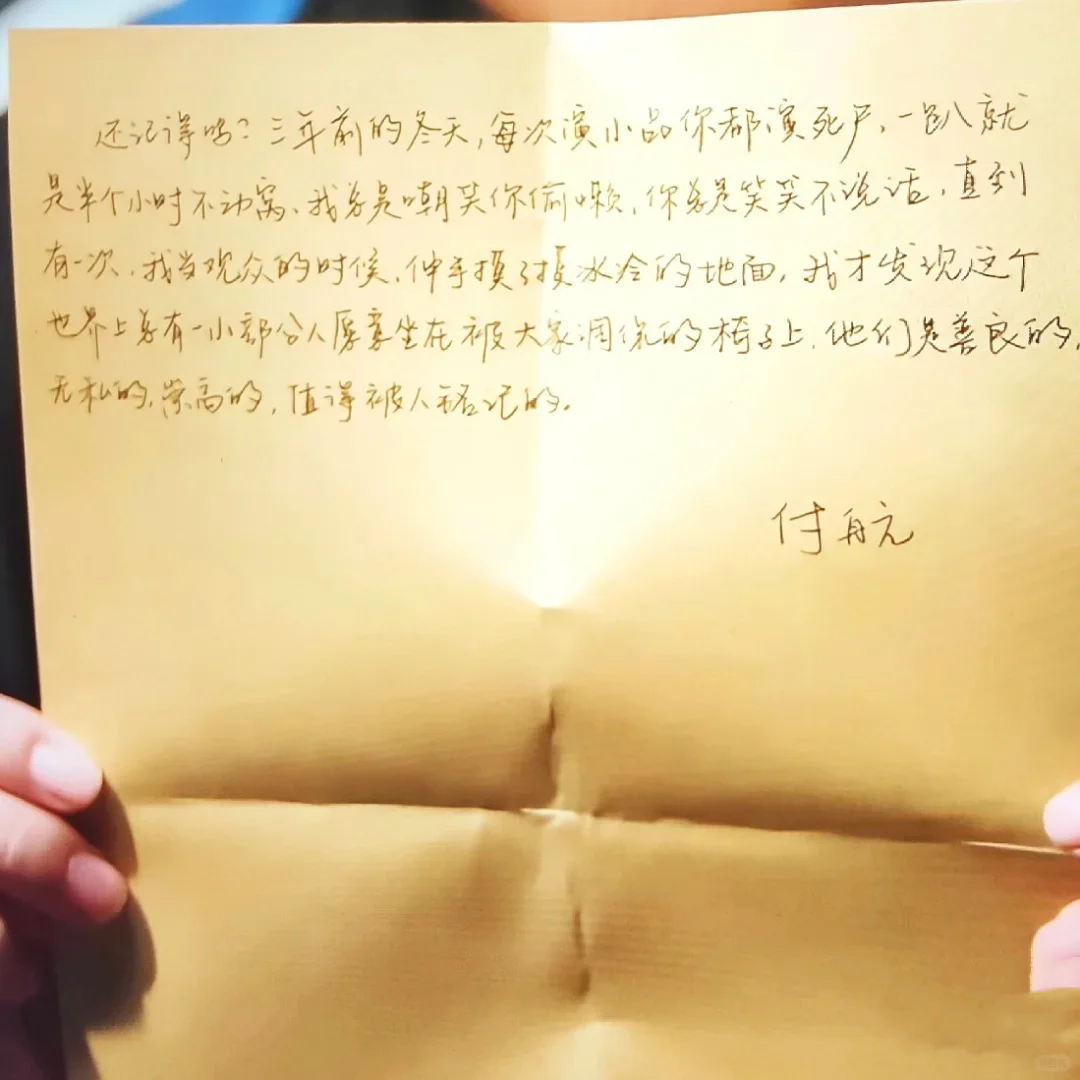 还记得吗？三年前的冬天，每次演小品你都演死尸，一趴就
是半个小时不动窝、我总是嘲笑你偷懒，你总是笑笑不说话，直到
有一次，我当观众的时候，伸手摸了摸冰冷的地面，我才发现这个
世界上总有一小部分人愿意坐在被大家调侃的椅子上，他们是善良的，
无私的，崇高的，值得被人铭记的。
付航